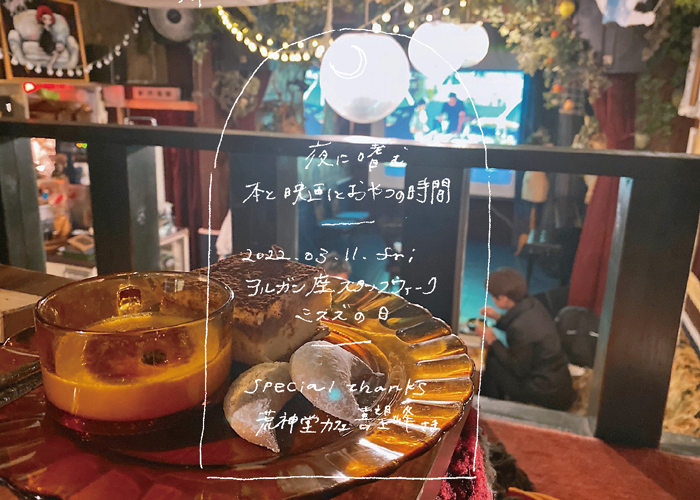 夜に嗜む
本と映画とおやつの時間
2022.03.11.fri
ヲルガン座スタッフウィーク
ミスズの日
special thanks
荒神堂カフェ 喜望峰